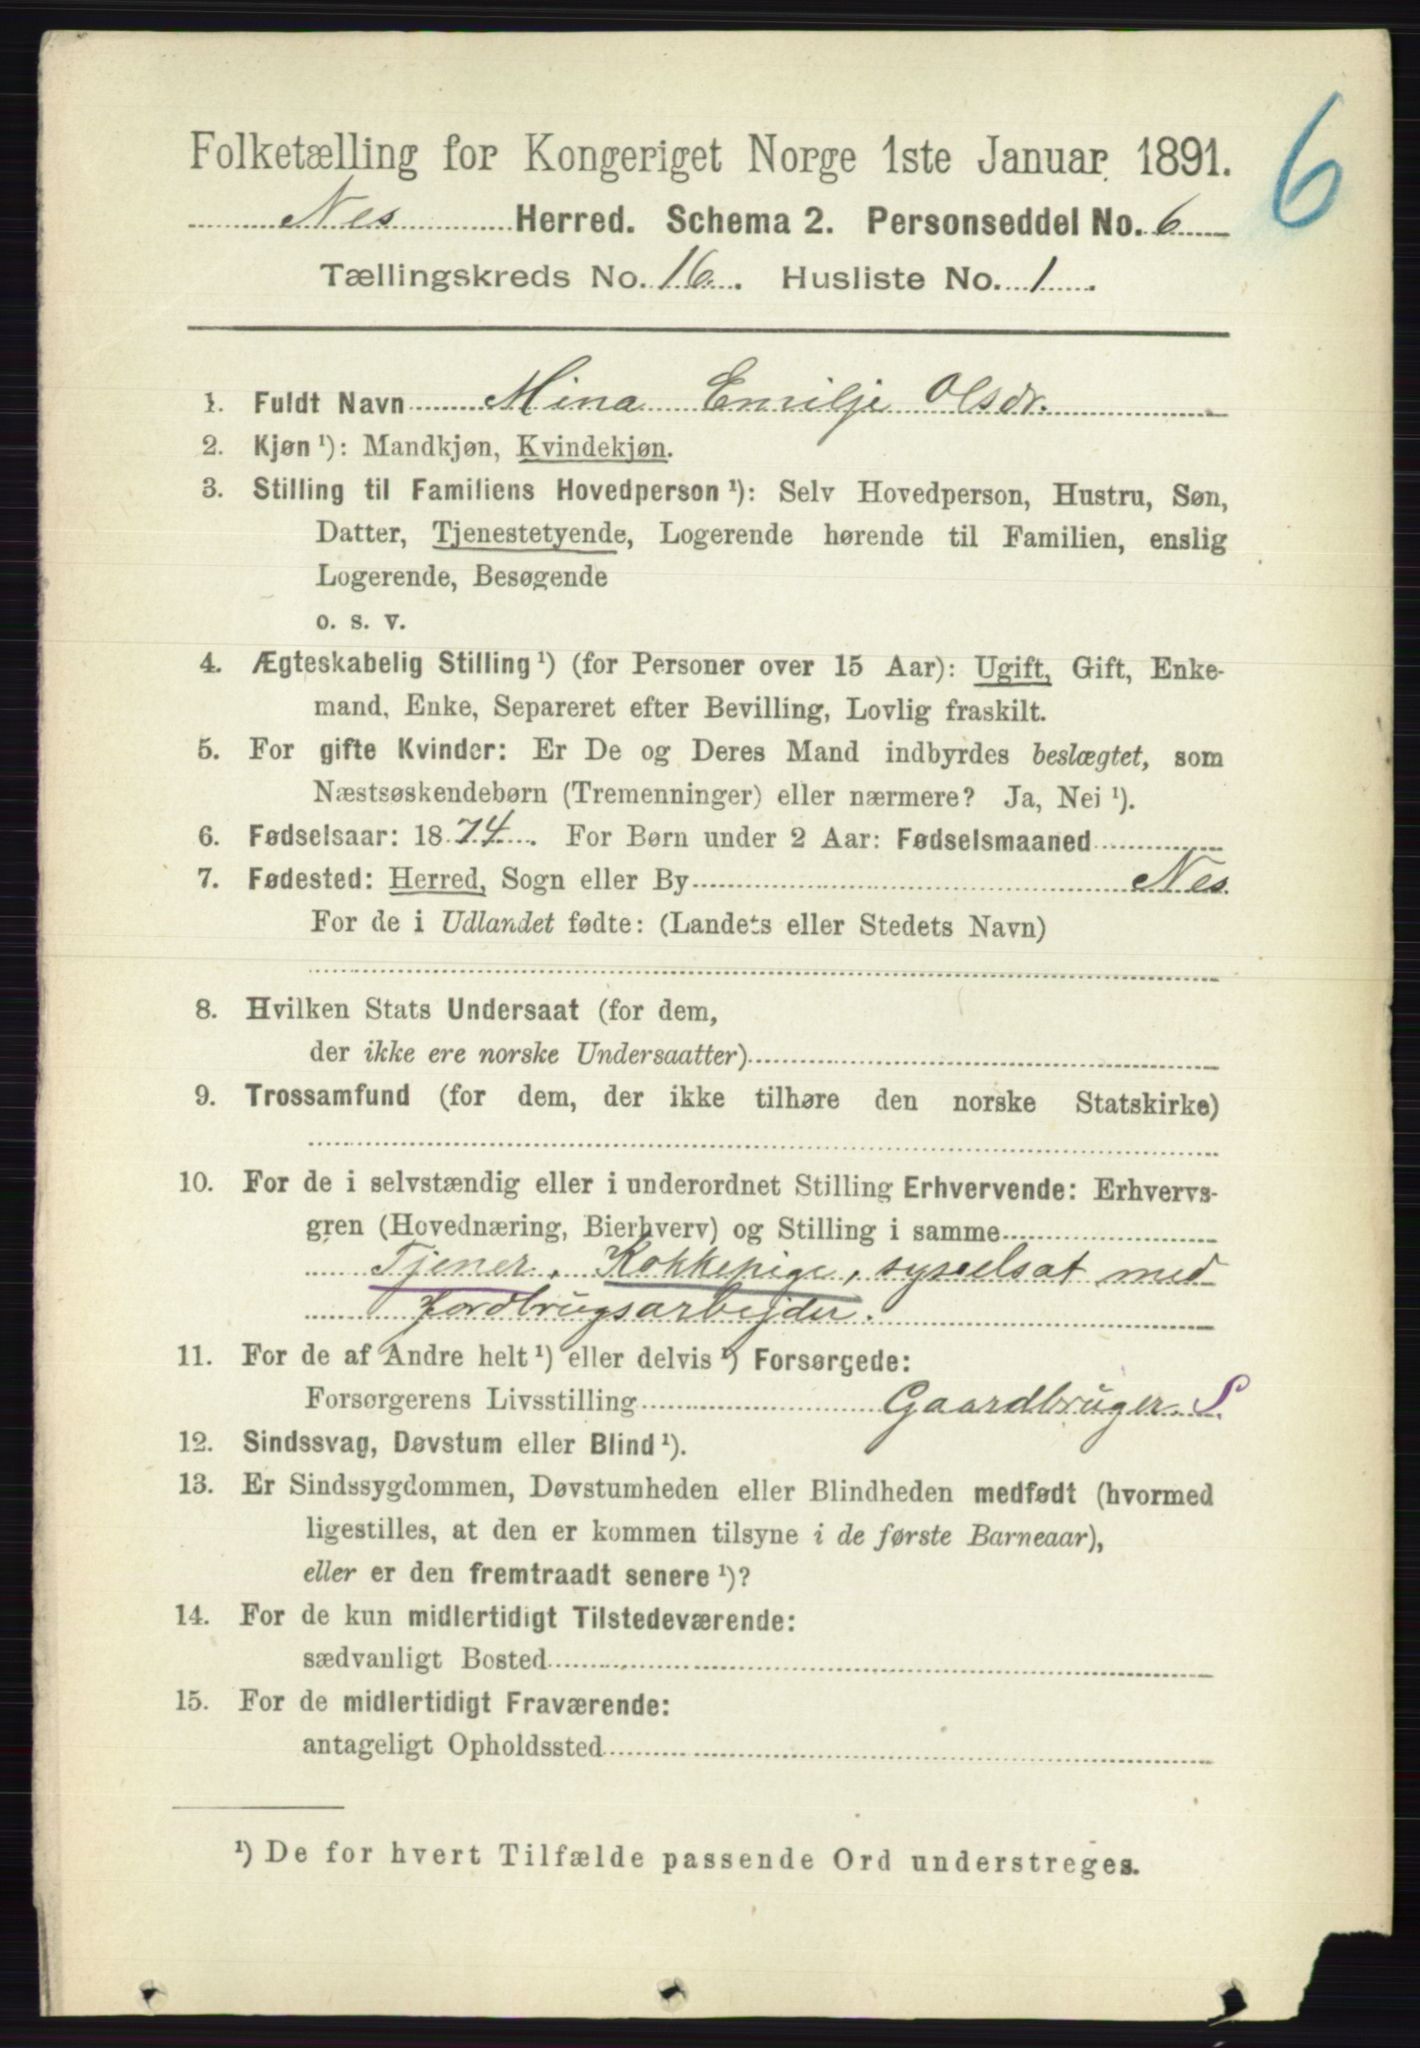 6
Folketælling for Kongeriget Norge 1ste Januar 1891.
Nes Herred. Schema 2. Personseddel No. 6
Tællingskreds No. 16. Husliste No. 1.
1. Fuldt Navn Mina Emilje Olsdr.
2. Kjøn ¹): Mandkjøn, Kvindekjøn.
3. Stilling til Familiens Hovedperson ¹): Selv Hovedperson, Hustru, Søn,
Datter, Tjenestetyende, Logerende hørende til Familien, enslig
Logerende, Besøgende
o. s. v.
4. Ægteskabelig Stilling ¹) (for Personer over 15 Aar): Ugift, Gift, Enke-
mand, Enke, Separeret efter Bevilling, Lovlig fraskilt.
5. For gifte Kvinder: Er De og Deres Mand indbyrdes beslægtet, som
Næstsøskendebørn (Tremenninger) eller nærmere? Ja, Nei ¹).
6. Fødselsaar: 1874. For Børn under 2 Aar: Fødselsmaaned
7. Fødested: Herred, Sogn eller By Nes.
For de i Udlandet fødte: (Landets eller Stedets Navn)
8. Hvilken Stats Undersaat (for dem,
der ikke ere norske Undersaatter)
9. Trossamfund (for dem, der ikke tilhøre den norske Statskirke)
10. For de i selvstændig eller i underordnet Stilling Erhvervende: Erhvervs-
gren (Hovednæring, Bierhverv) og Stilling i samme
Tjener, Kokkepige, sysselsat med
Jordbrugsarbejder.
11. For de af Andre helt ¹) eller delvis ¹) Forsørgede:
Forsørgerens Livsstilling Gaardbruger. S.
12. Sindssvag, Døvstum eller Blind ¹).
13. Er Sindssygdommen, Døvstumheden eller Blindheden medfødt (hvormed
ligestilles, at den er kommen tilsyne i de første Barneaar),
eller er den fremtraadt senere ¹)?
14. For de kun midlertidigt Tilstedeværende:
sædvanligt Bosted
15. For de midlertidigt Fraværende:
antageligt Opholdssted
¹) De for hvert Tilfælde passende Ord understreges.